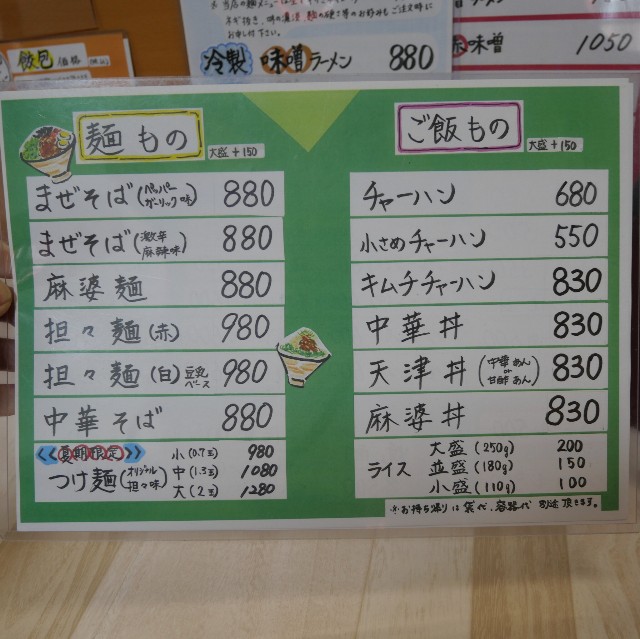 ネギ抜き、
お申し付け下さい。
餃包 価格
冷製 味噌ラーメン 880
味噌 1050
麺もの 大盛+150
まぜそば(ペッパーガーリック味) 880
まぜそば(激辛麻辣味) 880
麻婆麺 880
担々麺(赤) 980
担々麺(白)豆乳ベース 980
中華そば 880
《夏期限定》
つけ麺(オリジナル担々味)
小(0.7玉) 980
中(1.3玉) 1080
大(2玉) 1280
ご飯もの 大盛+150
チャーハン 680
小さめチャーハン 550
キムチチャーハン 830
中華丼 830
天津丼(中華あん or 甘酢あん) 830
麻婆丼 830
ライス
大盛(250g) 200
並盛(180g) 150
小盛(110g) 100
※お持ち帰りは袋代、容器代別途頂きます。